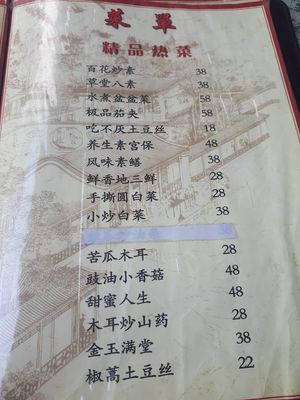 菜單
精品热菜
百花炒素 38
草堂八素 38
水煮盆盆菜 58
极品茄夹 58
吃不厌土豆丝 18
养生素宫保 48
风味素鳝 38
鲜香地三鲜 28
手撕圆白菜 28
小炒白菜 38
苦瓜木耳 28
豉油小香菇 48
甜蜜人生 48
木耳炒山药 28
金玉满堂 38
椒蒿土豆丝 22